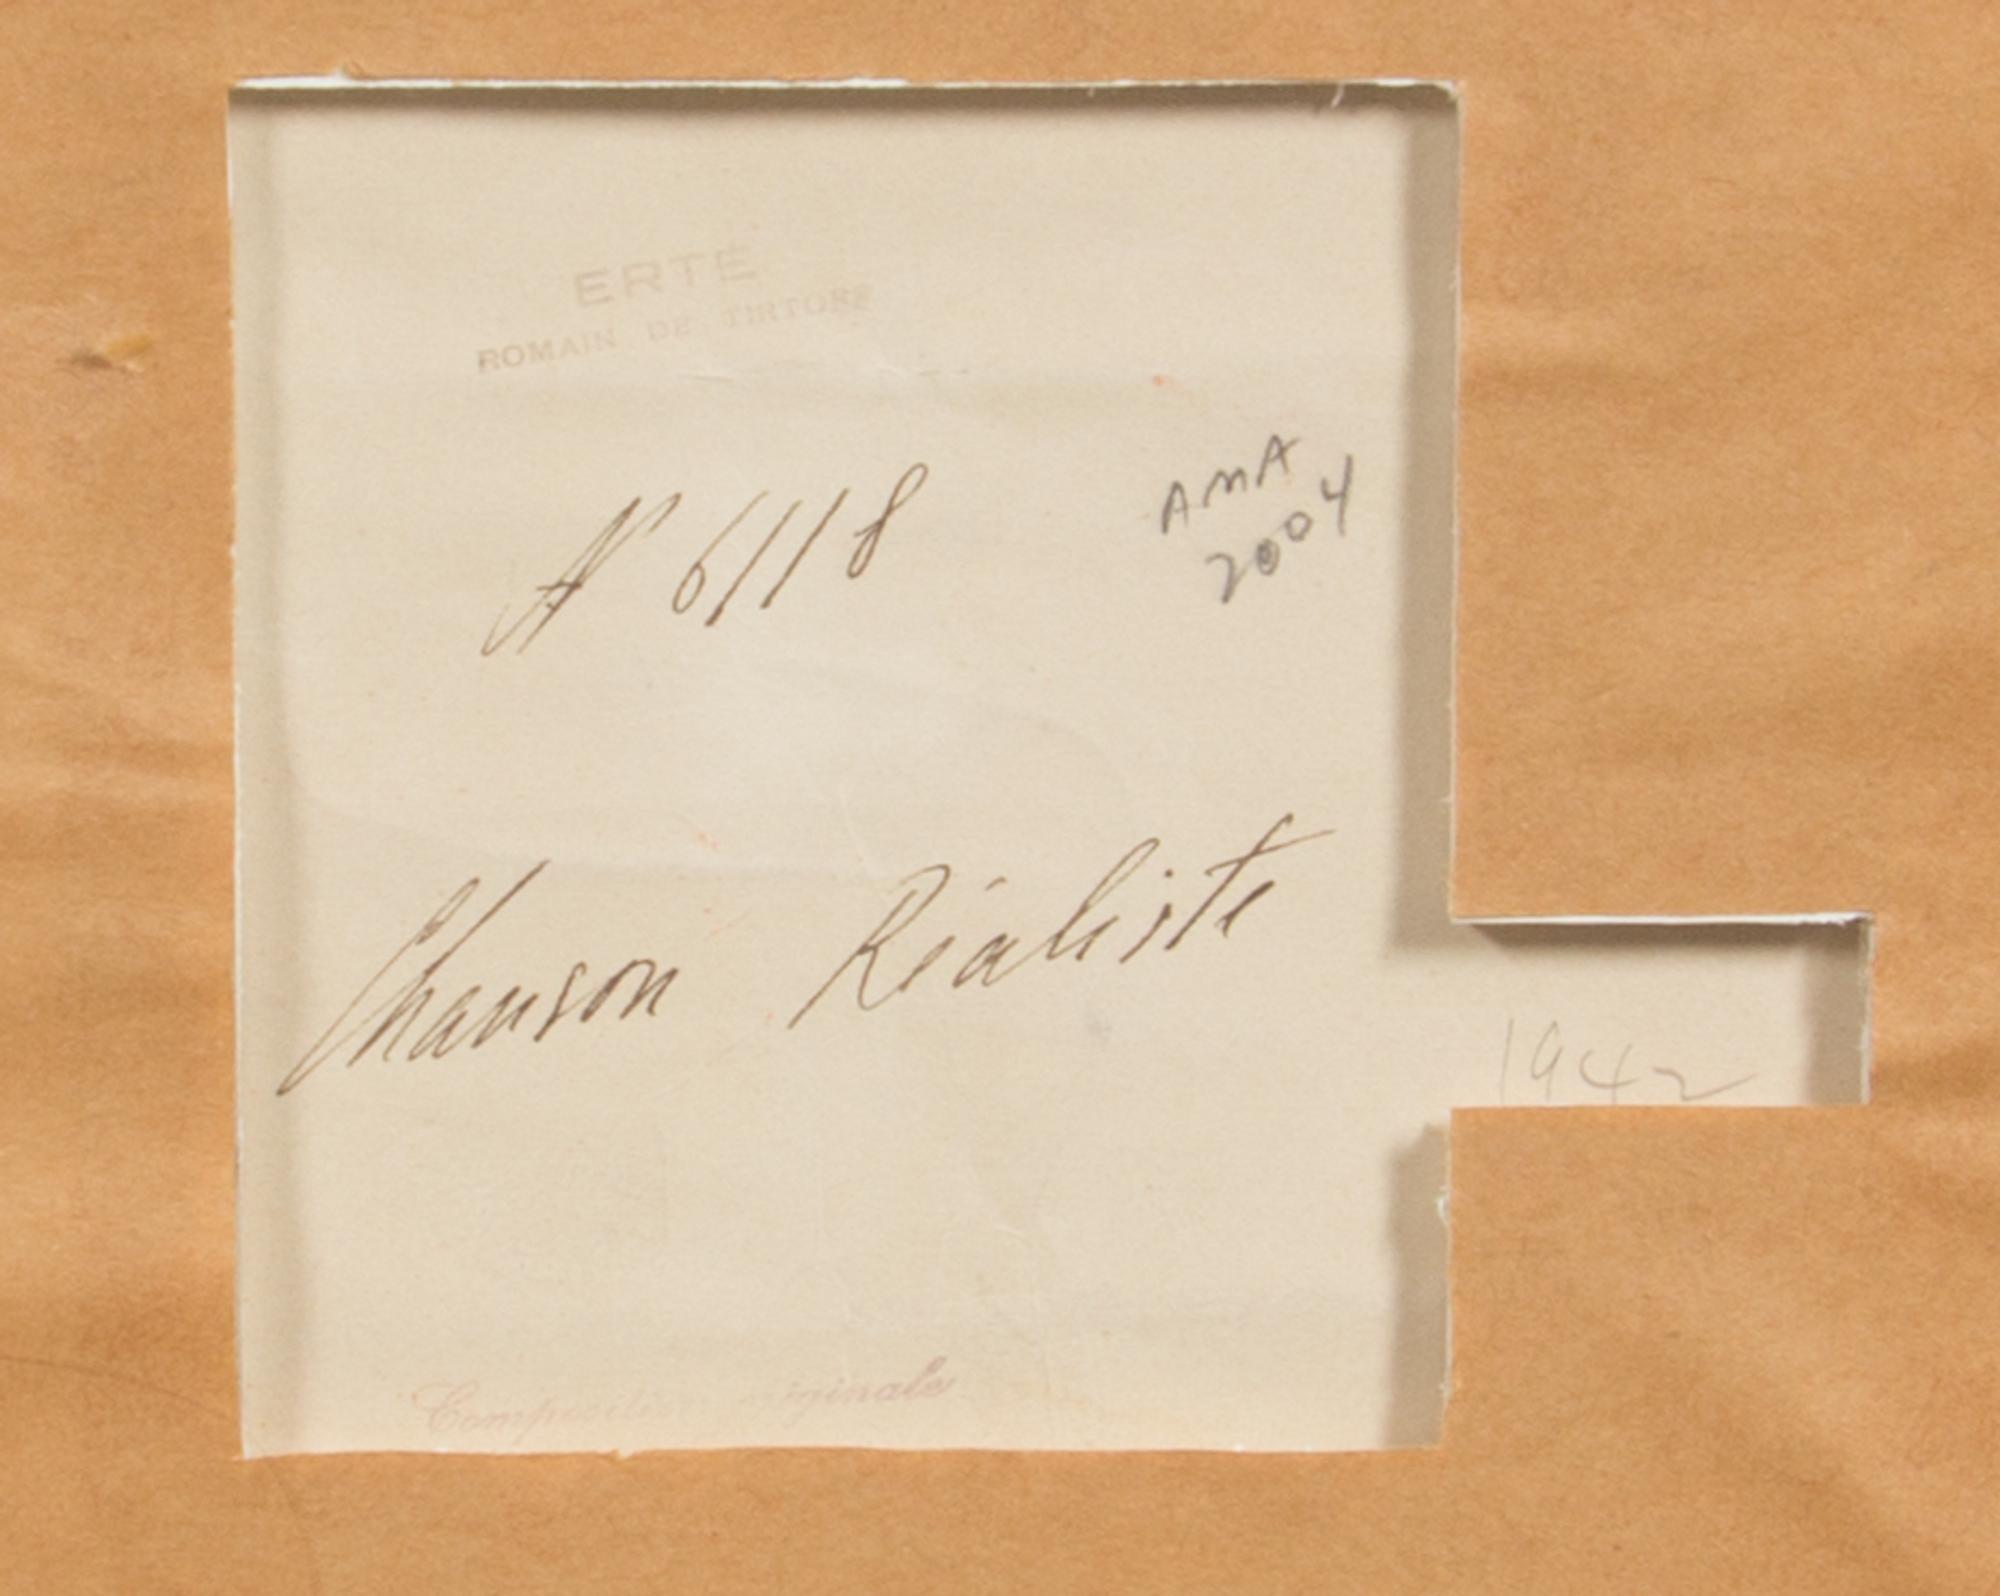 ERTÉ
ROMAIN DE TIRTOFF
N° 6118
AMA
2004
Chanson Réaliste
1942
Composition originale